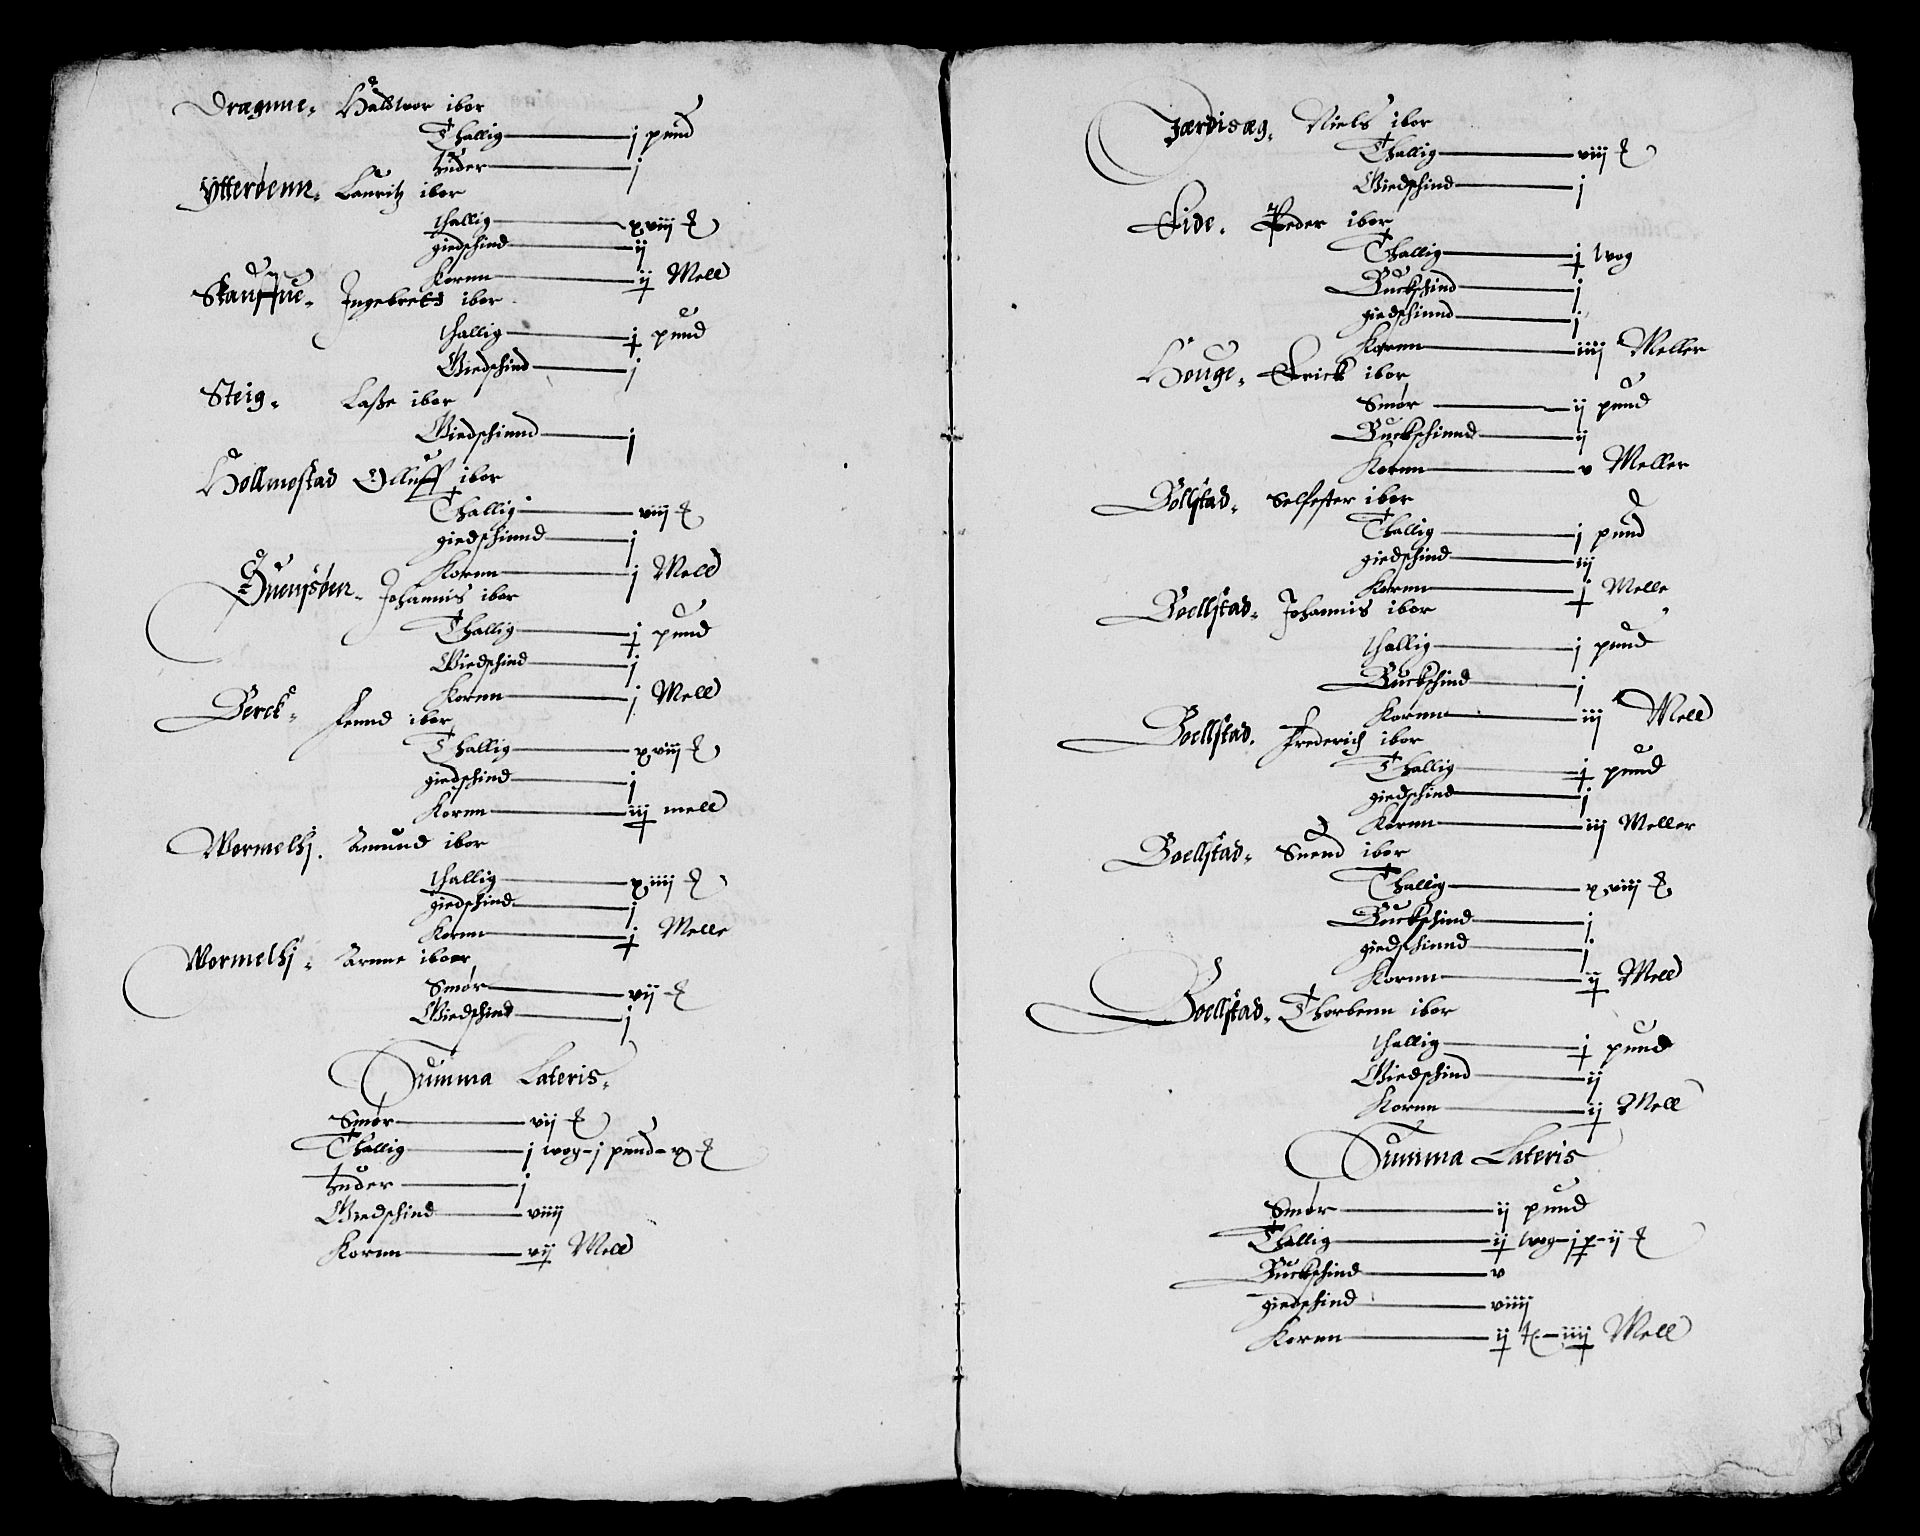 Dragnne. Haldwor ibor
Thallig j pund
huder j
Ytterøenn. Lauritz ibor
thallig xviij ℔
giedschind ij
Kornn ij Mell
Skauffue. Ingebrett ibor
thallig j pund
Wiedschind j
Steig. Laße ibor
Wiedschinnd j
Hollmestad Olluff ibor
Thallig viij ℔
giedschinnd j
Kornn j Meld
Johannis ibor
Thallig j pund
Wiedschind j
Kornn j Mell
Berck. ibor
Thallig xviij ℔
giedschind j
Kornn iij mell
Wormelhj. Amund ibor
thallig xiiij ℔
giedschind j
Kornn j Melle
Wormelhj. Arnne iboer
Smør vij ℔
Wiedschind j
Summa Lateris.
Smør vij ℔
Thallig j wog - j pund - v ℔
huder j
Wiedschind viiij
Kornn vij Meld
Niels ibor
Thallig viij ℔
Wiedschind j
Eide. Peder ibor
Thallig j wog
Buckschind j
giedschinnd j
Kornn iiij Meller
Houge. Erick ibor
Smør ij pund
Buckschinnd ij
Kornn v Meller
Bollstad. Selfester ibor
Thallig j pund
giedschind iij
Kornn j Melle
Boellstad. Johannis ibor
thallig j pund
Buckschind j
Kornn iij Meld
Boellstad. Frederich ibor
Thallig j pund
giedschind j
Kornn iij Meller
Boellstad. Suend ibor
Thallig xviij ℔
Buckschind j
giedschinnd j
Kornn ij Meld
Boellstad. Thorbenn ibor
thallig j pund
Wiedschind ij
Kornn ij Mell
Summa Lateris
Smør ij pund
Thallig ij wog - j p - ij ℔
Buckschind v
giedschind viiij
Kornn ij - iiij Mell